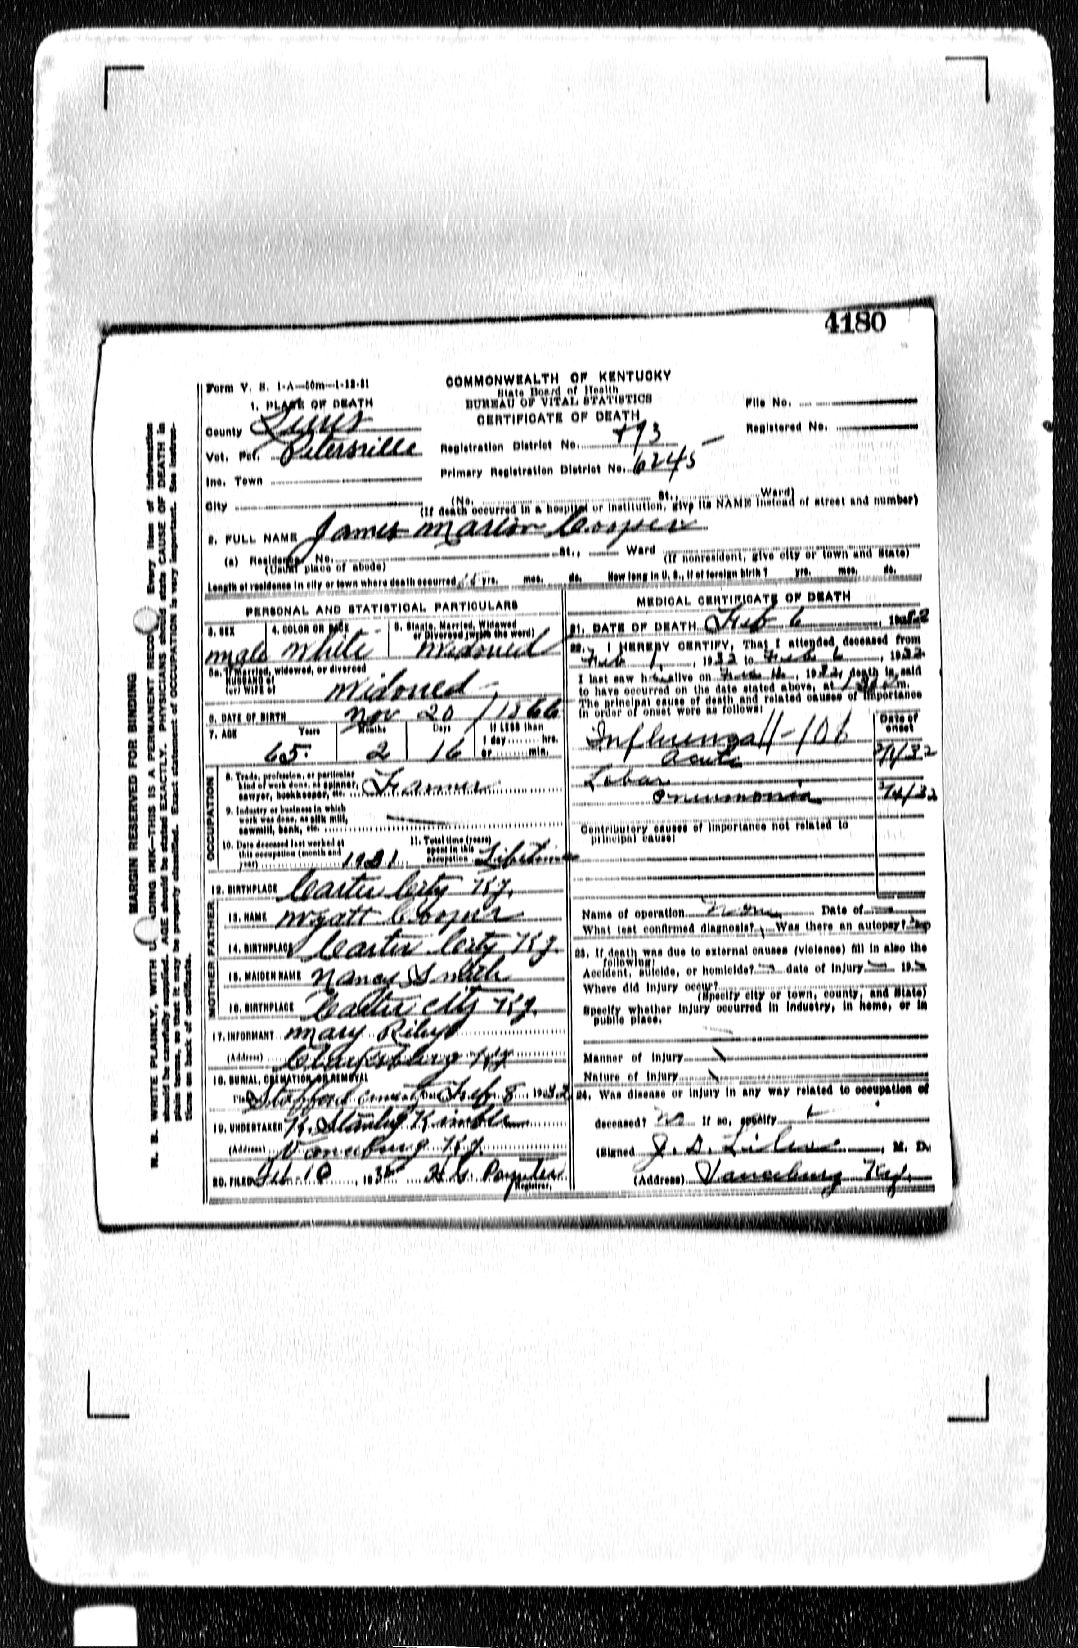 4180
Form V. S. 1-A—50m—1-12-31
COMMONWEALTH OF KENTUCKY
State Board of Health
BUREAU OF VITAL STATISTICS
CERTIFICATE OF DEATH
File No.
Registered No.
1. PLACE OF DEATH
County Lewis
Vot. Pct. Petersville
Inc. Town
City
Registration District No. 793
Primary Registration District No. 6245
(No. St., Ward)
(If death occurred in a hospital or institution, give its NAME instead of street and number)
2. FULL NAME James Marion Cooper
(a) Residence No. St., Ward
(Usual place of abode) (If nonresident, give city or town and State)
Length of residence in city or town where death occurred yrs. mos. ds. How long in U. S., if of foreign birth? yrs. mos. ds.
PERSONAL AND STATISTICAL PARTICULARS
3. SEX male
4. COLOR OR RACE White
5. Single, Married, Widowed or Divorced (write the word) Widowed
5a. If married, widowed, or divorced
HUSBAND of
(or) WIFE of Widowed
6. DATE OF BIRTH Nov 20 / 1866
7. AGE Years 65 Months 2 Days 16 If LESS than 1 day hrs. or min.
OCCUPATION
8. Trade, profession, or particular kind of work done, as spinner, sawyer, bookkeeper, etc. Farmer
9. Industry or business in which work was done, as silk mill, sawmill, bank, etc.
10. Date deceased last worked at this occupation (month and year) 1931
11. Total time (years) spent in this occupation Lifetime
12. BIRTHPLACE Carter City Ky.
FATHER
13. NAME Wyatt Cooper
14. BIRTHPLACE Carter City Ky
MOTHER
15. MAIDEN NAME Nancy Smith
16. BIRTHPLACE Carter City Ky.
17. INFORMANT Mary Riley
(Address) Clarksburg Ky
18. BURIAL, CREMATION OR REMOVAL
Place Stafford Cemetery Date Feb 8 1932
19. UNDERTAKER R. Stanley Kimble
(Address) Vanceburg Ky.
20. FILED Feb 10, 193 Poynter
Registrar.
MEDICAL CERTIFICATE OF DEATH
21. DATE OF DEATH Feb 6, 1932
22. I HEREBY CERTIFY, That I attended deceased from
Feb 1, 1932 to Feb 6, 1932
I last saw h alive on Feb, 1932, death is said
to have occurred on the date stated above, at m.
The principal cause of death and related causes of importance
in order of onset were as follows:
Date of onset
Influenza 11-101
acute 2/1/32
Lobar
pneumonia 2/4/32
Contributory causes of importance not related to
principal cause:
Name of operation none Date of
What test confirmed diagnosis? Was there an autopsy? no
23. If death was due to external causes (violence) fill in also the
following:
Accident, suicide, or homicide? date of injury 19
Where did injury occur?
(Specify city or town, county, and State)
Specify whether injury occurred in industry, in home, or in
public place.
Manner of injury
Nature of injury
24. Was disease or injury in any way related to occupation of
deceased? no If so, specify
(Signed J. D. Liles, M. D.
(Address) Vanceburg Ky.
MARGIN RESERVED FOR BINDING
N. B. WRITE PLAINLY, WITH UNFADING INK—THIS IS A PERMANENT RECORD. Every item of information
should be carefully supplied. AGE should be stated EXACTLY. PHYSICIANS should state CAUSE OF DEATH in
plain terms, so that it may be properly classified. Exact statement of OCCUPATION is very important. See instruc-
tions on back of certificate.